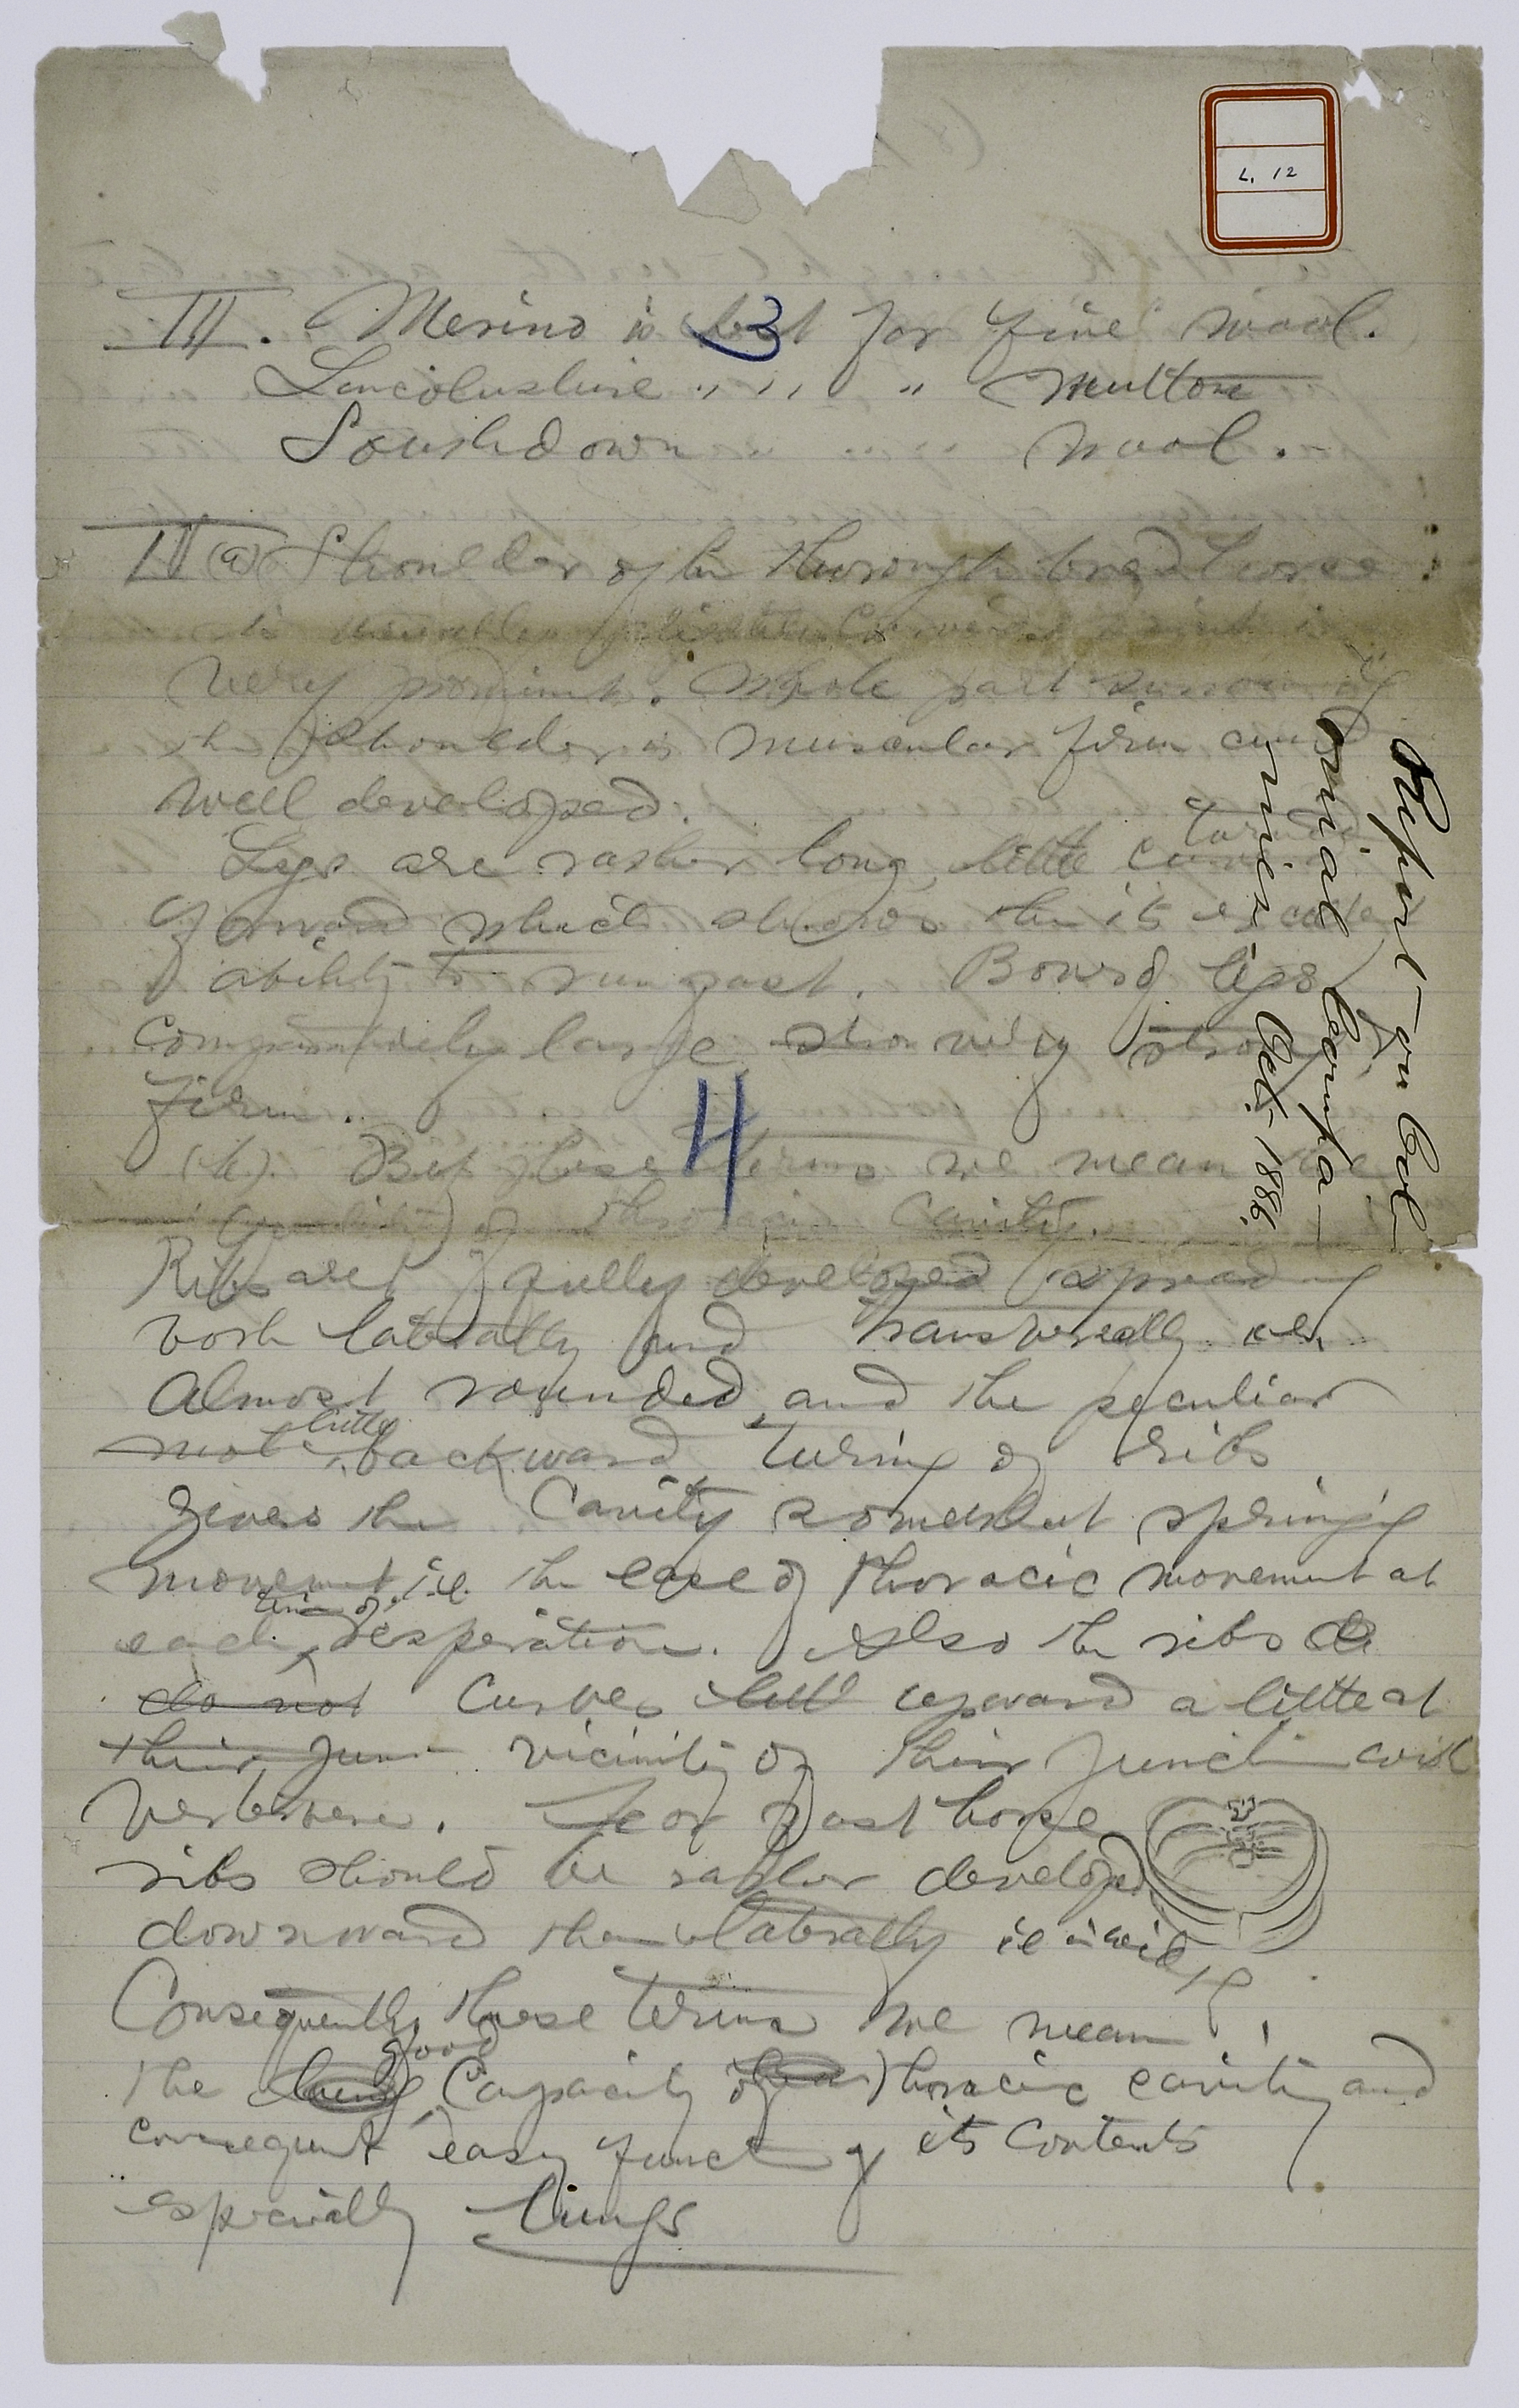 L. 12
III. Merino is best for fine wool.
3
Lincolnshire " " " mutton
Southdown wool.
IV (a) Shoulder of the thorough bred horse
is
very prominent. Whole part
the shoulder is muscular firm and
well developed.
turned
Legs are rather long, little
forward which shows the its
ability to run fast. Bons of legs
comparatively large very strong
firm.
4
(b). By these terms we mean the
of thoracic cavity.
Ribs are fully developed spreading
both laterally and transversally
almost rounded, and the peculiar
little
backward turing of ribs
gives the cavity somewhat springing
movement, i.e. the ease of thoracic movement at
time of
each respiration. Also the ribs
do not curves little upward a little at
their junc vicinity of their junction with
vertebrae. For fast horse
ribs should be rather developed
downward than laterally
Consequently these terms we mean
good
the capacity of thoracic cavity and
consequent easy funct of its contents
especially lungs
Report on Col-
onial Compa-
nies Oct. 1886.